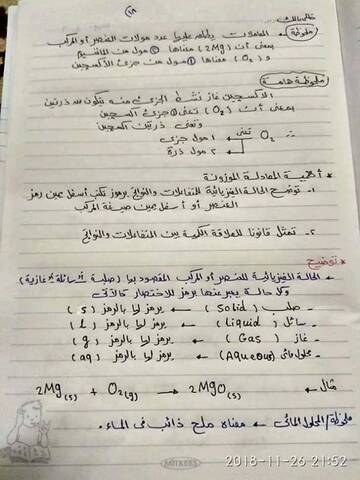 (١٨)
ملحوظة
المعاملات يظهر عدد مولات العنصر أو المركب
بمعنى أن (2Mg) معناها ② مول من الماغنسيوم
و (O₂) معناها ① مول من جزئ الأكسجين
ملحوظة هامة
الأكسجين غاز نشط الجزئ منه يتكون من ذرتين
بمعنى أن (O₂) تعنى ① جزئ أكسجين
وتعنى ذرتين أكسجين
∴ O₂ تعنى ١ مول جزئ
٢ مول ذرة
* أهمية المعادلة الموزونة
١- توضح الحالة الفيزيائية للتفاعلات والنواتج برموز تكتب أسفل يمين رمز
العنصر أو أسفل يمين صيغة المركب
٢- تمثل قانونا للعلاقة الكمية بين المتفاعلات والنواتج
* توضيح
الحالة الفيزيائية للعنصر أو المركب المقصود بها (صلبة أو سائلة أو غازية)
وكل حالة يعبر عنها برمز للاختصار كالآتى
- صلب (Solid) ← يرمز لها بالرمز (s)
- سائل (Liquid) ← يرمز لها بالرمز (l)
- غاز (Gas) ← يرمز لها بالرمز (g)
- محلول مائى (Aqueous) ← يرمز لها بالرمز (aq)
مثال ← 2Mg(s) + O₂(g) → 2MgO(s)
ملحوظة/ المحلول المائى ← معناه ملح ذائب فى الماء.
MINTRA
2018-11-26 21:52